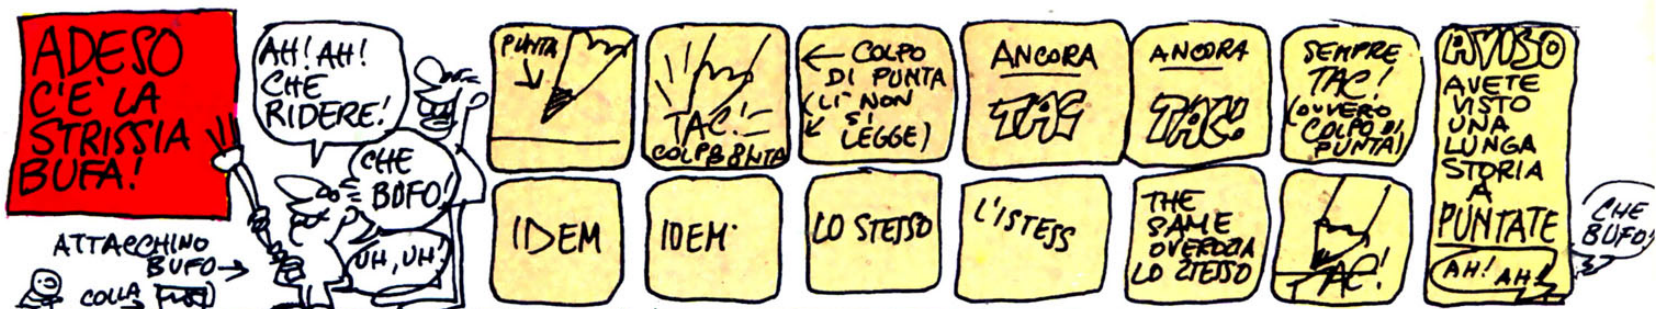 ADESO
C'E' LA
STRISSIA
BUFA!
ATTACCHINO
BUFO →
COLLA →
AH! AH!
CHE
RIDERE!
CHE
BUFO!
UH, UH!
PUNTA
TAC!
← COLPO
DI PUNTA
(LI' NON
SI
LEGGE)
ANCORA
TAC
ANCORA
TAC!
SEMPRE
TAC!
(OVVERO
COLPO DI
PUNTA)
IDEM
IDEM
LO STESSO
L'ISTESS
THE
SAME
OVEROZIA
LO STESSO
TAC!
AVISO
AVETE
VISTO
UNA
LUNGA
STORIA
A
PUNTATE
AH! AH!
CHE
BUFO!